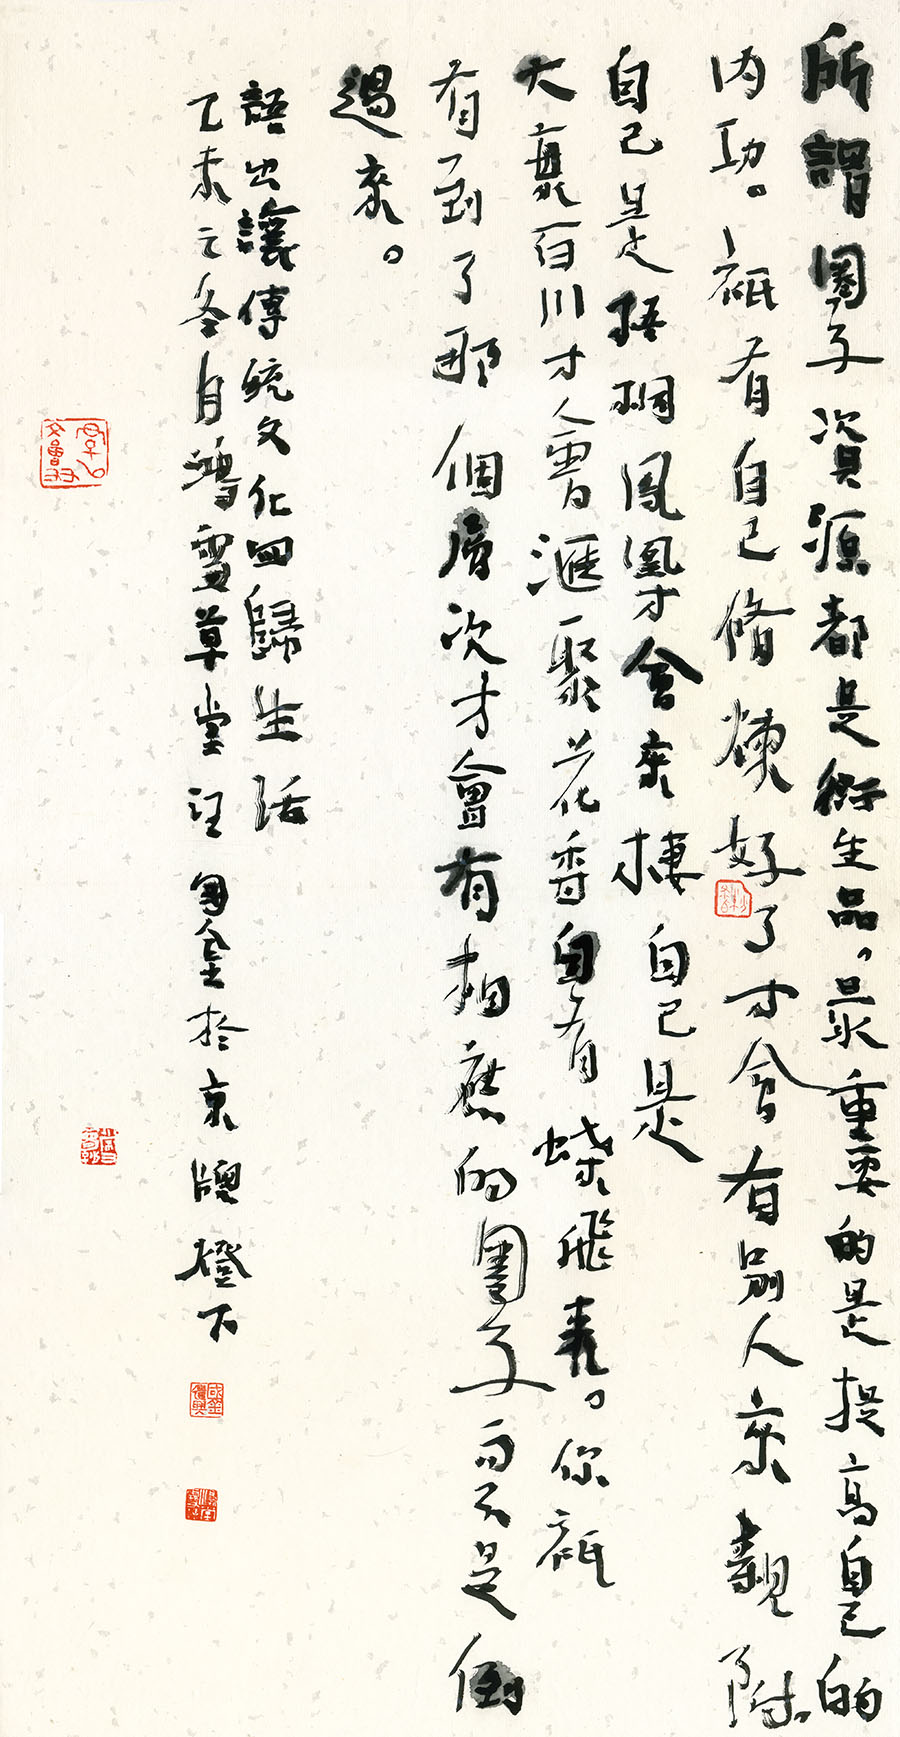 所謂圈子資源都是衍生品，最重要的是提高自己的
内功。祇有自己脩煉好了才會有別人來親附。
自己是梧桐鳳凰才會來棲自己是
大百川才會滙聚花香自有蝶飛來。你祇
有到了那個層次才會有相應的圈子而不是倒
過來。
語出讓傳統文化回歸生活
乙未之冬月鴻雪草堂汪國金於京牌燈下